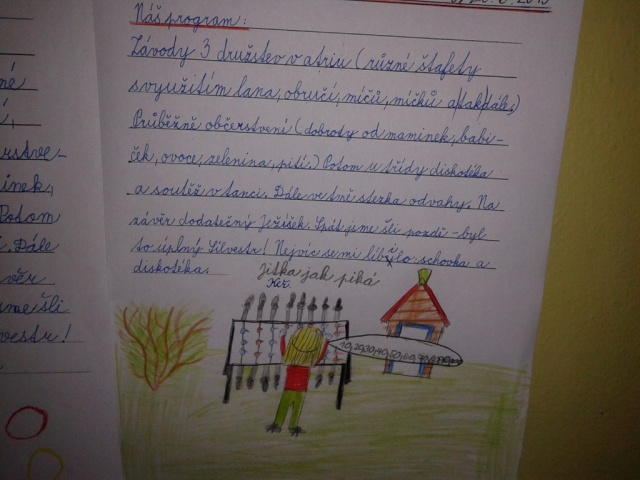 Náš program:
Závody 3 družstev v atriu (různé štafety
s využitím lana, obručí, míčů, míčků a tak dále.)
Průběžně občerstvení (dobroty od maminek, babi-
ček, ovoce, zelenina, pití.) Potom u třídy diskotéka
a soutěž v tanci. Dále ve tmě stezka odvahy. Na
závěr dodatečný Ježíšek. Spát jsme šli pozdě - byl
to úplný Silvestr! Nejvíc se mi líbila schovka a
diskotéka.
Jitka jak piká
10,20,30,40,50,60,70,80,90
né
rstve-
inek,
Potom
. Dále
věr
jsme šli
vestr!